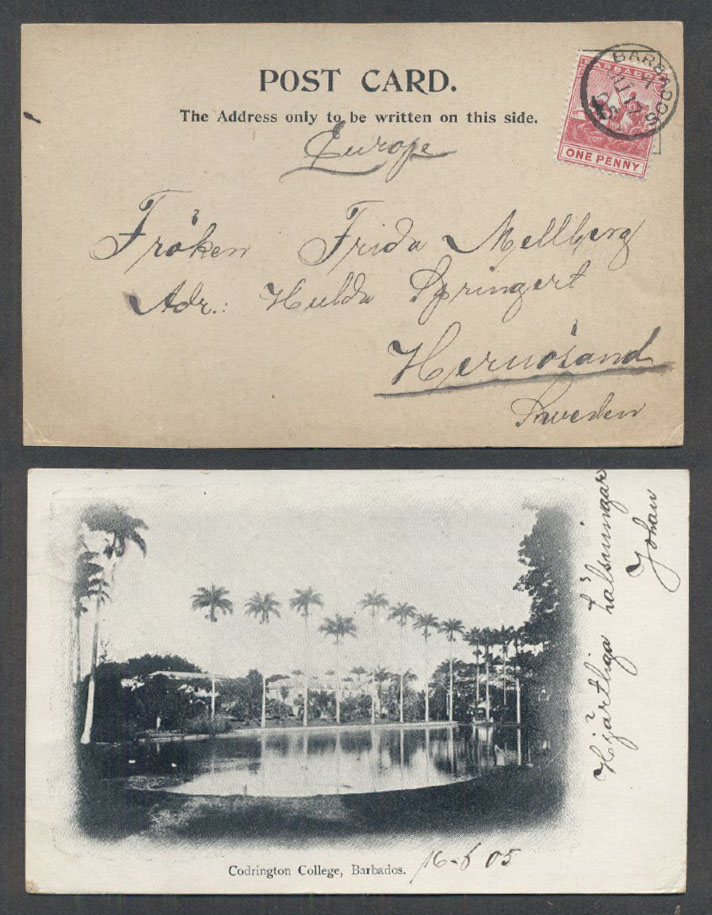 POST CARD.
The Address only to be written on this side.
Europe
BARBADOS
BARBADOS
ONE PENNY
Fröken Frida Mellberg
Adr.: Hulda Springert
Hernösand
Sweden
Hjärtliga hälsningar
Johan
Codrington College, Barbados. 16-6 05